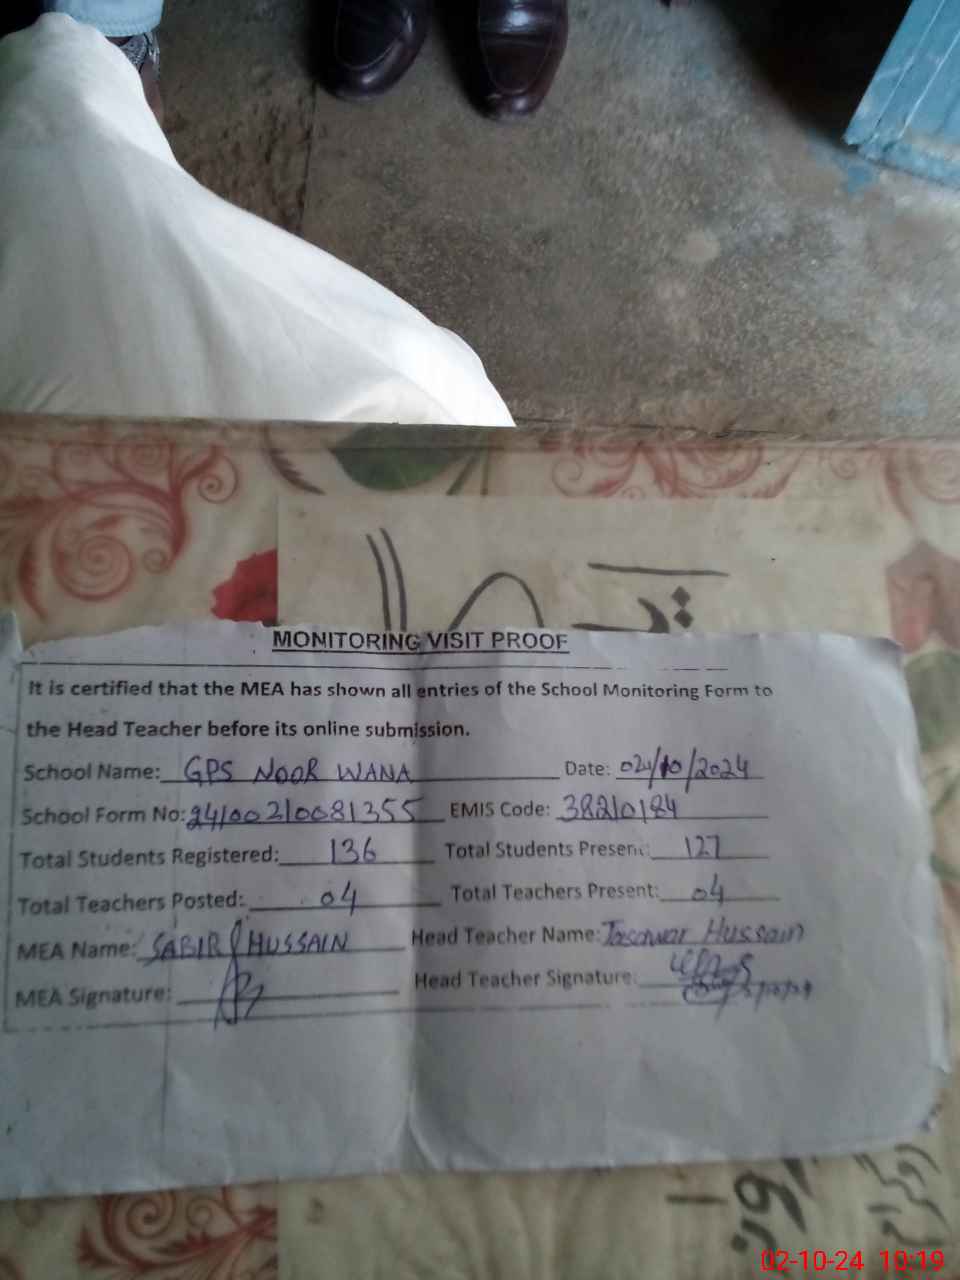 MONITORING VISIT PROOF
It is certified that the MEA has shown all entries of the School Monitoring Form to
the Head Teacher before its online submission.
School Name: GPS NOOR WANA Date: 02/10/2024
School Form No: 24100210081355 EMIS Code: 38210184
Total Students Registered: 136 Total Students Present: 127
Total Teachers Posted: 04 Total Teachers Present: 04
MEA Name: SABIR HUSSAIN Head Teacher Name: Tasawar Hussain
MEA Signature: Head Teacher Signature:
02-10-24 10:19